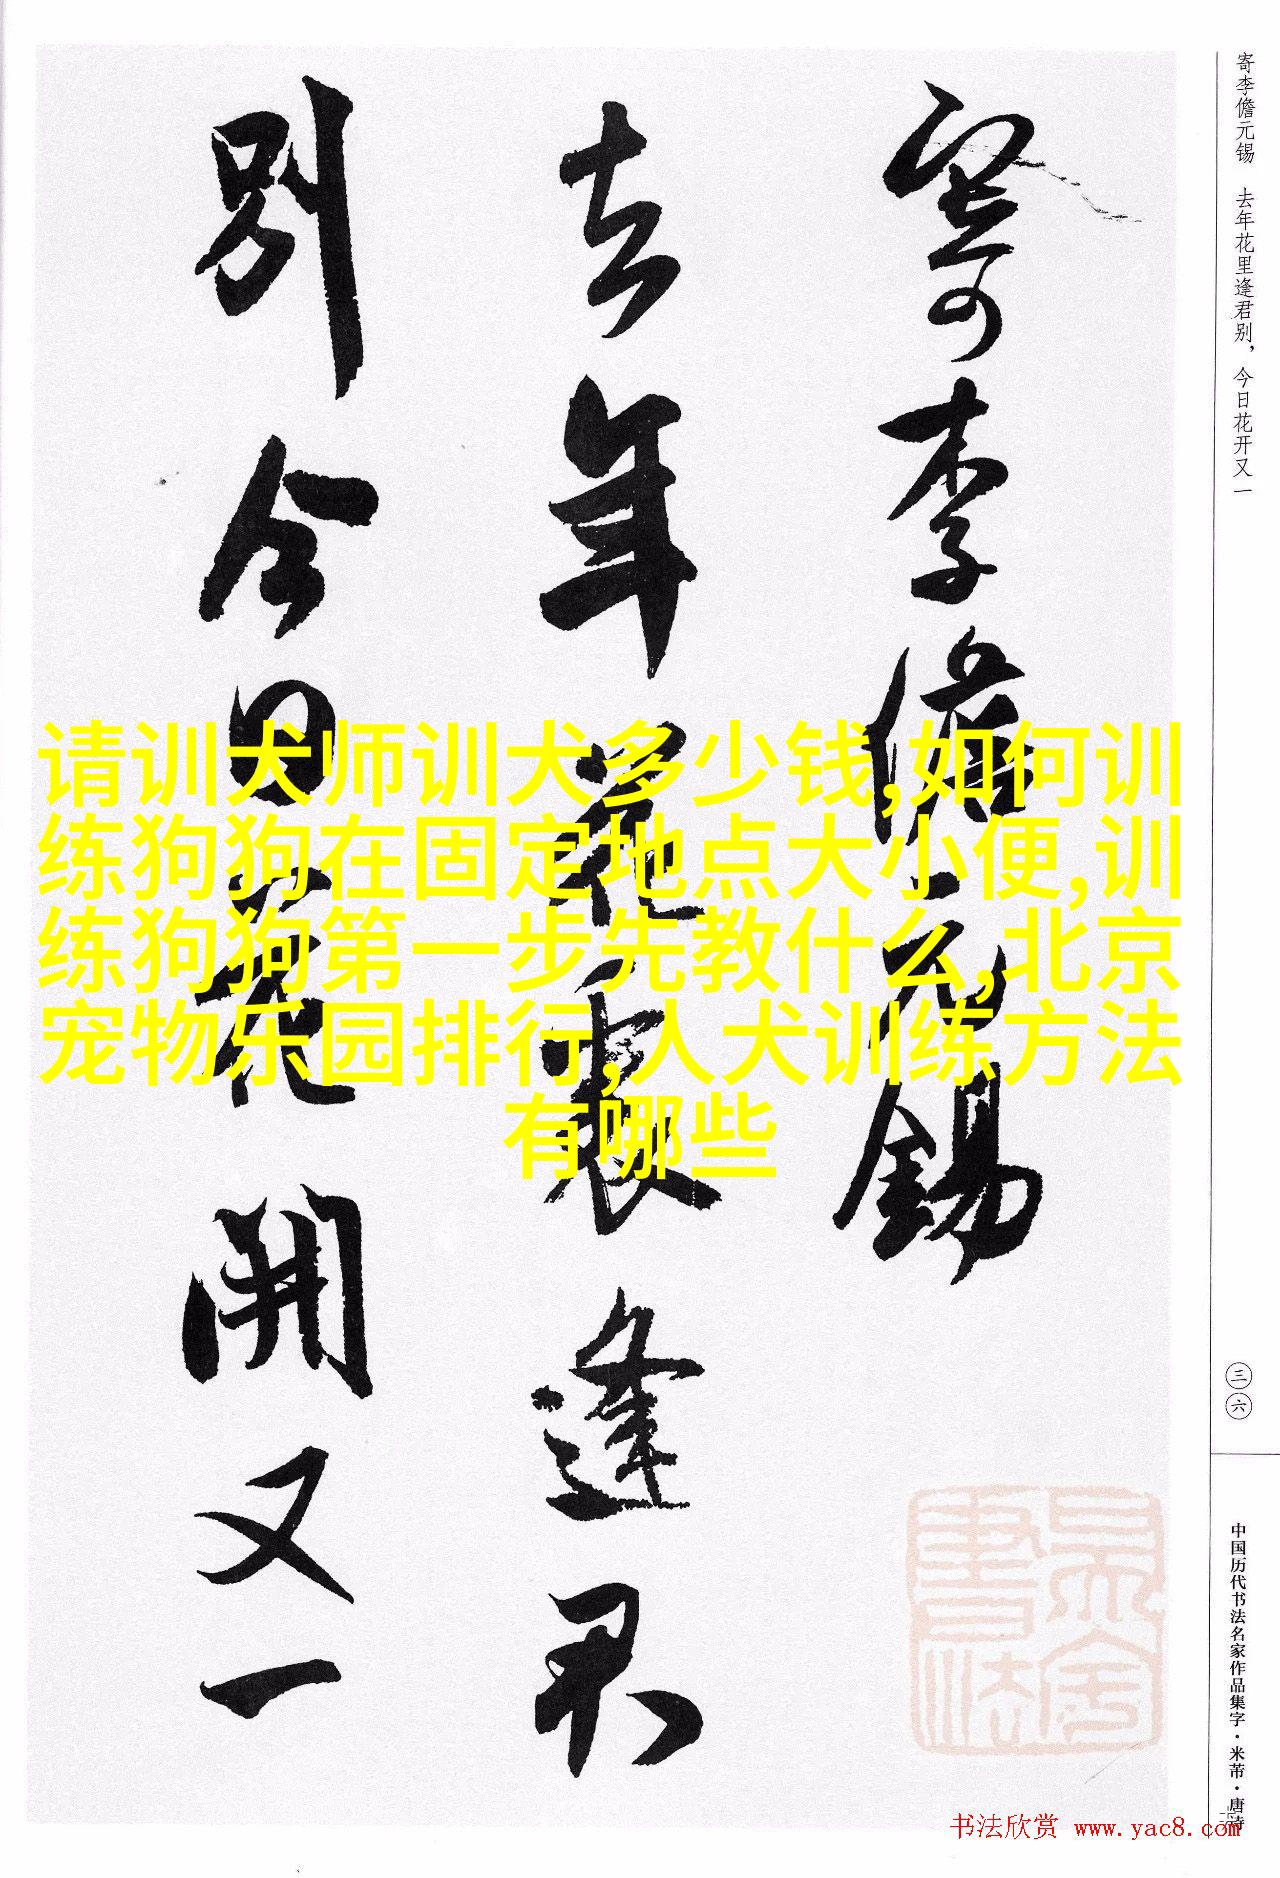 寄李儋元锡　去年花里逢君别，今日花开又一
三六
中国历代书法名家作品集字·米芾·唐诗
寄李儋元錫
去年花裏逢君
别今日花開又一
请训犬师训犬多少钱,如何训
练狗狗在固定地点大小便,训
练狗狗第一步先教什么,北京
宠物乐园排行,人犬训练方法
有哪些
书法欣赏 www.yac8.com